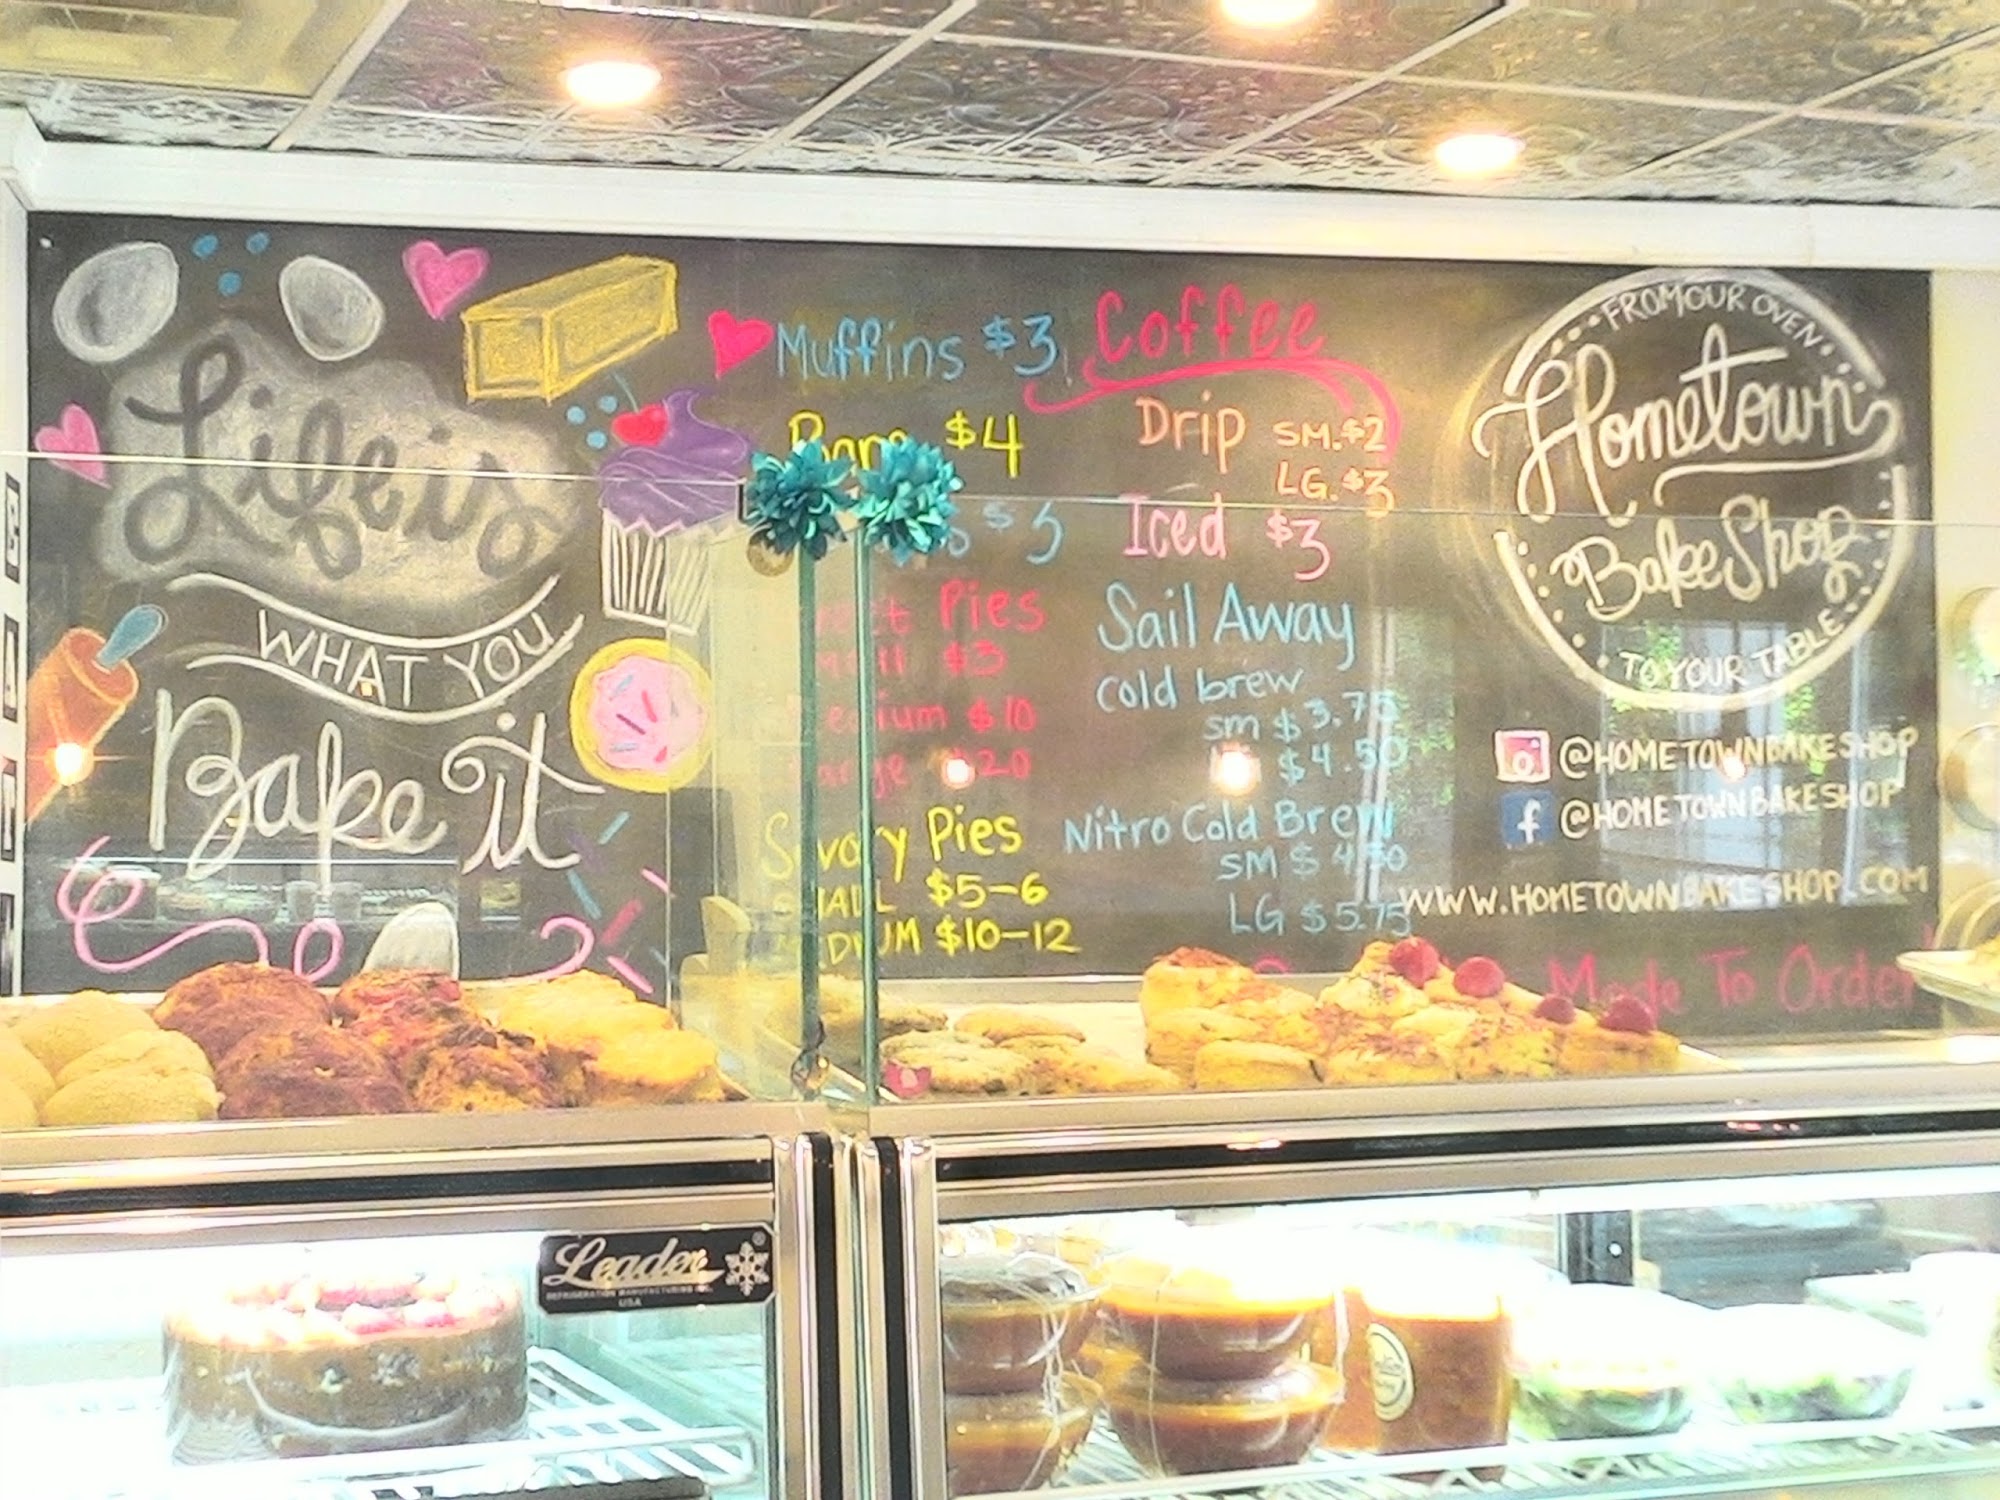 Life is
WHAT YOU
Bake it
Muffins $3
$4
Pies
$3
$10
$20
Savory Pies
SMALL $5-6
MEDIUM $10-12
Coffee
Drip SM. $2
LG. $3
Iced $3
Sail Away
Cold brew
sm $3.75
$4.50
Nitro Cold Brew
SM $4.50
LG $5.75
FROM OUR OVEN
Hometown
Bake Shop
TO YOUR TABLE
@HOMETOWNBAKESHOP
f @HOMETOWNBAKESHOP
WWW.HOMETOWNBAKESHOP.COM
Made To Order
Leader ®
REFRIGERATION MANUFACTURING INC.
USA